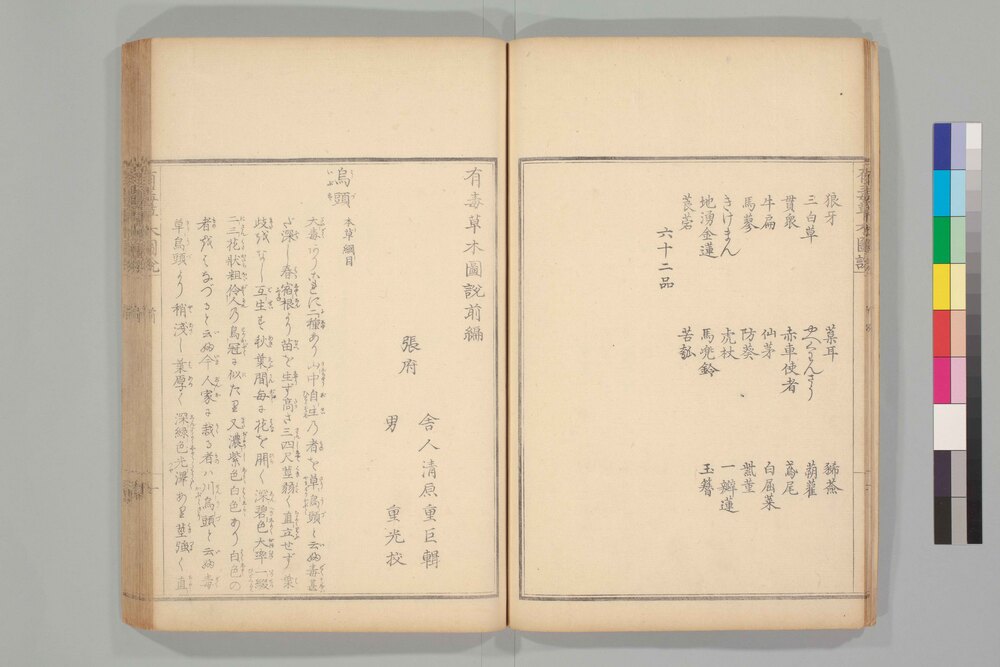 狼牙 葈耳 豨薟
三白草 蒴藋
貫衆 赤車使者 鳶尾
牛扁 仙茅 白屈菜
馬蓼 防葵 紫堇
きけまん 虎杖 一瓣蓮
地湧金蓮 馬兜鈴 玉簪
莨菪 苦瓠
六十二品
有毒草木圖說前編
張府 舎人清原重巨輯
男 重光校
烏頭 本草綱目
大毒ありこれに二種あり山中自生乃者を草烏頭と云ぬ毒甚
た深し春宿根より苗を生ず高さ三四尺莖弱く直立せず葉
歧殘なし互生す秋葉間每に花を開く深碧色大率一綴
二三花狀粗伶人乃烏冠に似たり又濃紫色白色あり白色の
者我しなづると云ぬ今人家に栽る者ハ川烏頭と云ぬ毒
草烏頭より稍淺し葉厚く深綠色光澤あり莖強く直